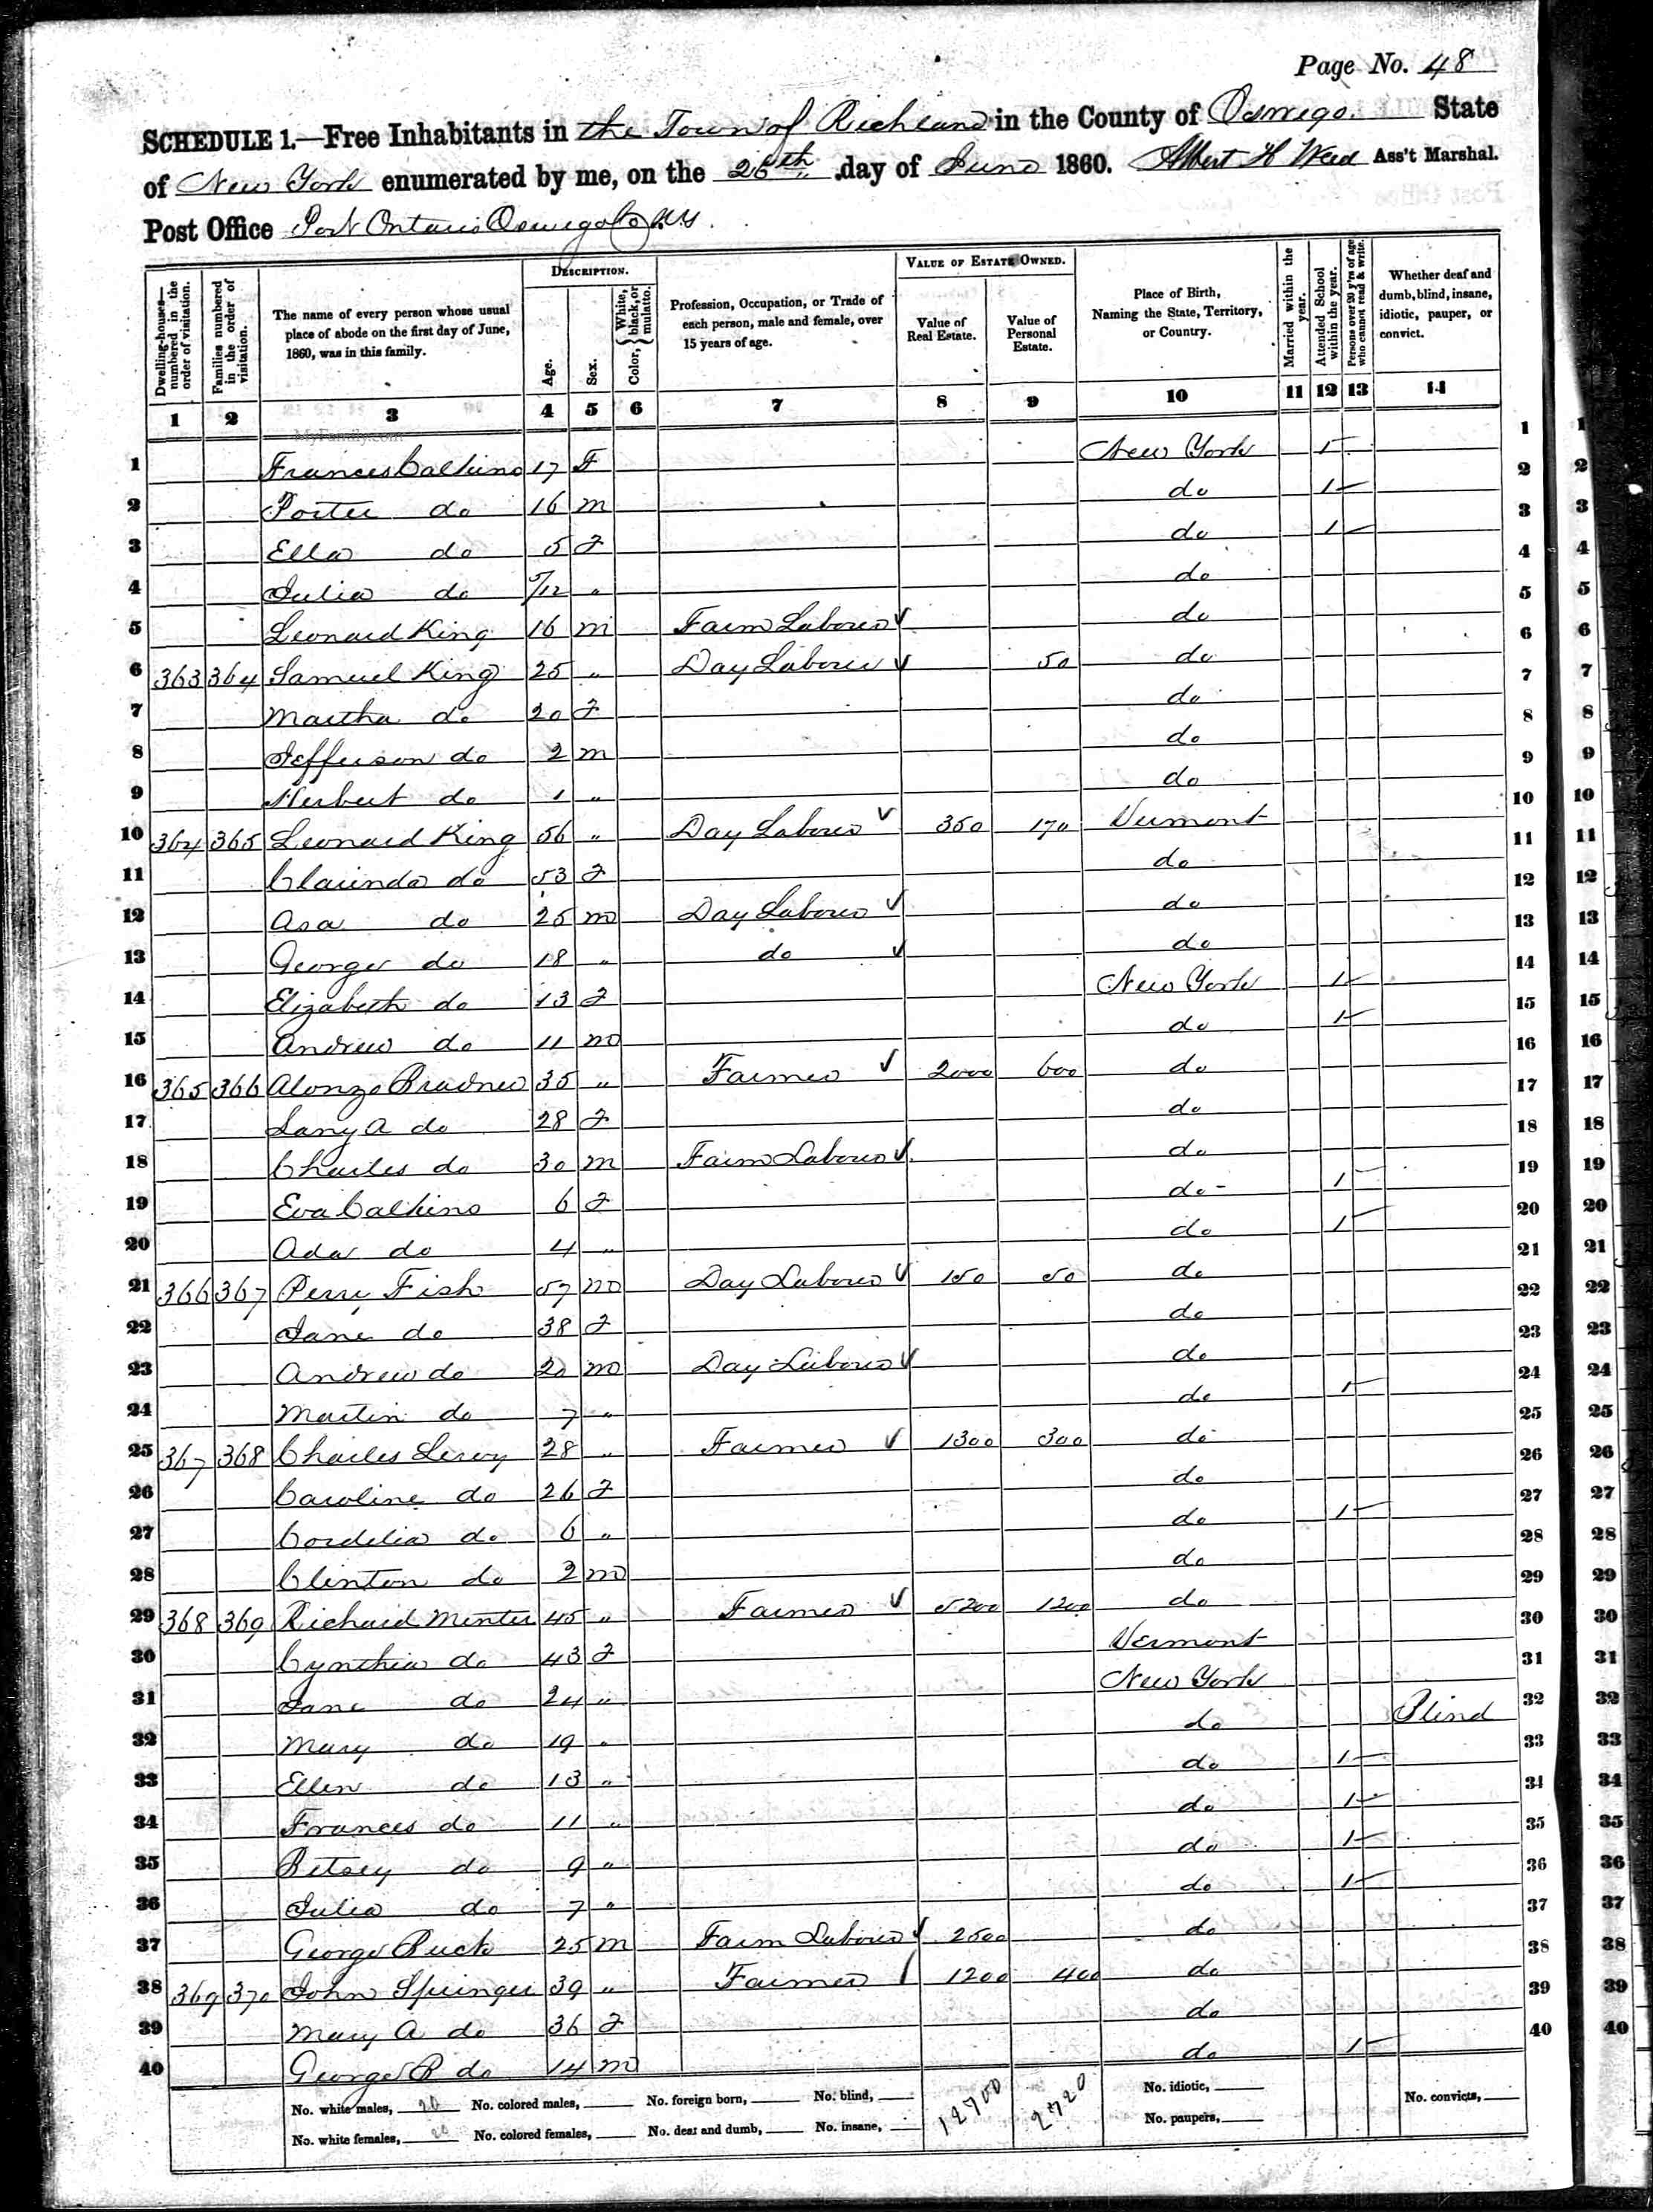 Page No. 48
SCHEDULE 1.—Free Inhabitants in the Town of Richland in the County of Oswego State
of New York enumerated by me, on the 26th day of June 1860. Albert H Weed Ass't Marshal.
Post Office Port Ontario Oswego Co N.Y.
Dwelling-houses—numbered in the order of visitation.
Families numbered in the order of visitation.
The name of every person whose usual place of abode on the first day of June, 1860, was in this family.
DESCRIPTION.
Age.
Sex.
Color, { White, black, or mulatto.
Profession, Occupation, or Trade of each person, male and female, over 15 years of age.
VALUE OF ESTATE OWNED.
Value of Real Estate.
Value of Personal Estate.
Place of Birth, Naming the State, Territory, or Country.
Married within the year.
Attended School within the year.
Persons over 20 y'rs of age who cannot read & write.
Whether deaf and dumb, blind, insane, idiotic, pauper, or convict.
1 2 3 4 5 6 7 8 9 10 11 12 13 14
MyFamily.com
1 Frances Calkins 17 F New York 1 1
2 Porter do 16 m do 1 2
3 Ella do 5 F do 1 3
4 Julia do 5/12 " do 4
5 Leonard King 16 m Farm Laborer ✓ do 5
6 363 364 Samuel King 25 " Day Laborer ✓ 50 do 6
7 Martha do 20 F do 7
8 Jefferson do 2 m do 8
9 Herbert do 1 " do 9
10 364 365 Leonard King 56 " Day Laborer ✓ 350 170 Vermont 10
11 Clarinda do 53 F do 11
12 Asa do 25 m Day Laborer ✓ do 12
13 George do 18 " do ✓ do 13
14 Elizabeth do 13 F New York 1 14
15 Andrew do 11 m do 1 15
16 365 366 Alonzo 35 " Farmer ✓ 2000 600 do 16
17 Lany A do 28 F do 17
18 Charles do 30 m Farm Laborer ✓ do 18
19 Eva Calkins 6 F do 1 19
20 Ada do 4 " do 1 20
21 366 367 Perry Fish 57 m Day Laborer ✓ 150 50 do 21
22 Jane do 38 F do 22
23 Andrew do 20 m Day Laborer ✓ do 23
24 Martin do 7 " do 1 24
25 367 368 Charles Leroy 28 " Farmer ✓ 1300 300 do 25
26 Caroline do 26 F do 26
27 Cordelia do 6 " do 1 27
28 Clinton do 2 m do 28
29 368 369 Richard Minter 45 " Farmer ✓ 5200 1200 do 29
30 Cynthia do 43 F Vermont 30
31 Jane do 24 " New York 31
32 Mary do 19 " do Blind 32
33 Ellen do 13 " do 1 33
34 Frances do 11 " do 1 34
35 Betsey do 9 " do 1 35
36 Julia do 7 " do 1 36
37 George Buck 25 m Farm Laborer ✓ 2500 do 37
38 369 370 John Springer 39 " Farmer 1200 400 do 38
39 Mary A do 36 F do 39
40 George B do 14 m do 1 40
No. white males, 20 No. colored males, No. foreign born, No. blind, 12700 2720 No. idiotic, No. convicts,
No. white females, 20 No. colored females, No. deaf and dumb, No. insane, No. paupers,